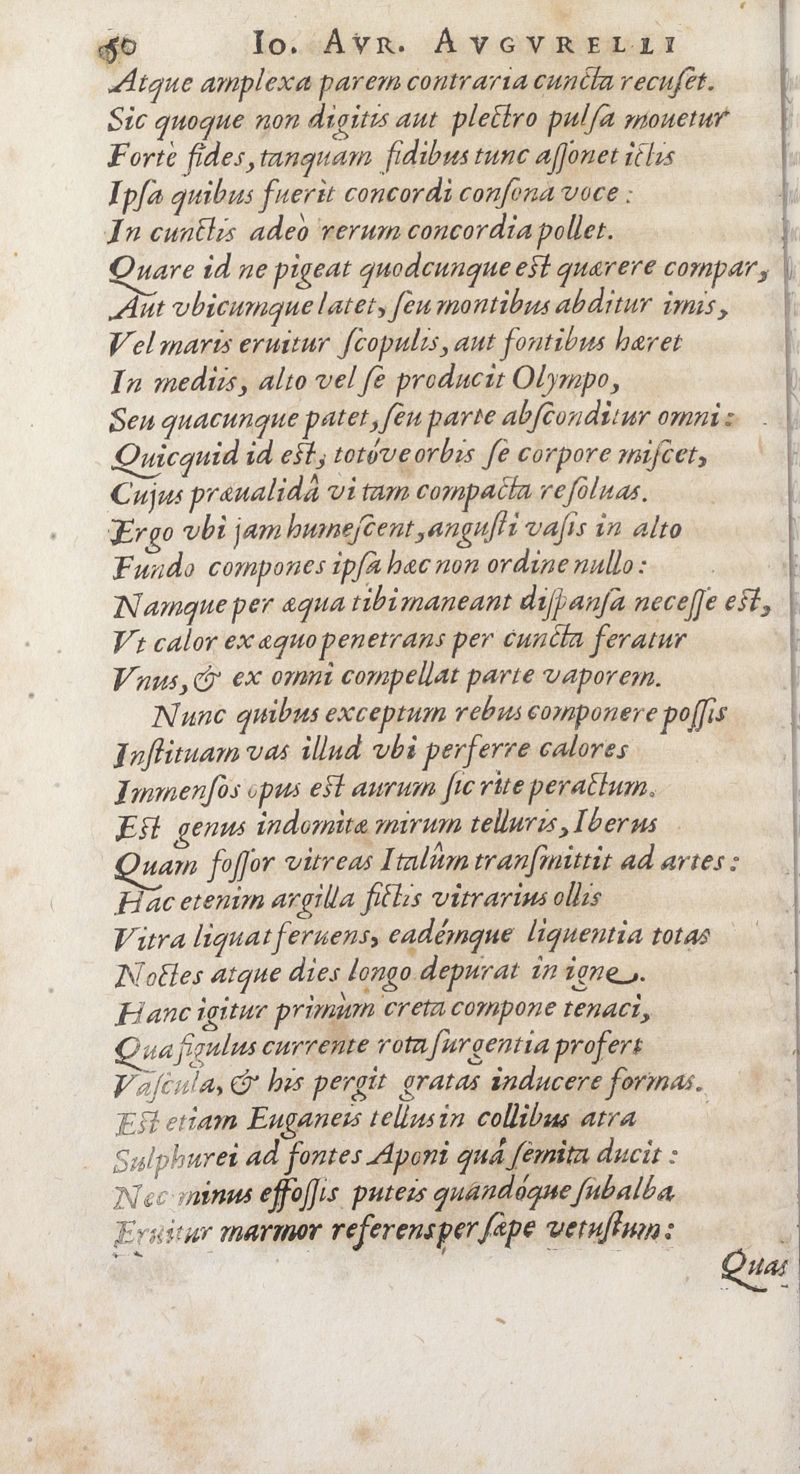 50 Io. AVR. AVGVRELLI
Atque amplexa parem contraria cuncta recuſet.
Sic quoque non digitis aut plectro pulſa mouetur
Fortè fides, tanquam fidibus tunc aſſonet ictis
Ipſa quibus fuerit concordi conſona voce:
In cunctis adeò rerum concordia pollet.
Quare id ne pigeat quodcunque eſt quærere compar,
Aut vbicumque latet, ſeu montibus abditur imis,
Vel maris eruitur ſcopulis, aut fontibus hæret
In mediis, alto vel ſe producit Olympo,
Seu quacunque patet, ſeu parte abſconditur omni:
Quicquid id eſt, totóve orbis ſe corpore miſcet,
Cujus præualidâ vi tam compacta reſoluas.
Ergo vbi jam humeſcent, anguſti vaſis in alto
Fundo compones ipſa hæc non ordine nullo:
Namque per æqua tibi maneant diſpanſa neceſſe eſt,
Vt calor ex æquo penetrans per cuncta feratur
Vnus, & ex omni compellat parte vaporem.
Nunc quibus exceptum rebus componere poſſis
Inſtituam vas illud vbi perferre calores
Immenſos opus eſt aurum ſic rite peractum.
Eſt genus indomitæ mirum telluris, Iberus
Quam foſſor vitreas Italûm tranſmittit ad artes:
Hac etenim argilla fictis vitrarius ollis
Vitra liquat feruens, eadémque liquentia totas
Noctes atque dies longo depurat in igne.
Hanc igitur primùm creta compone tenaci,
Qua figulus currente rota ſurgentia profert
Vaſcula, & his pergit gratas inducere formas.
Eſt etiam Euganeis tellus in collibus atra
Sulphurei ad fontes Aponi quâ ſemita ducit:
Nec minus effoſſis puteis quandóque ſubalba
Eruitur marmor referens per ſæpe vetuſtum:
Quas